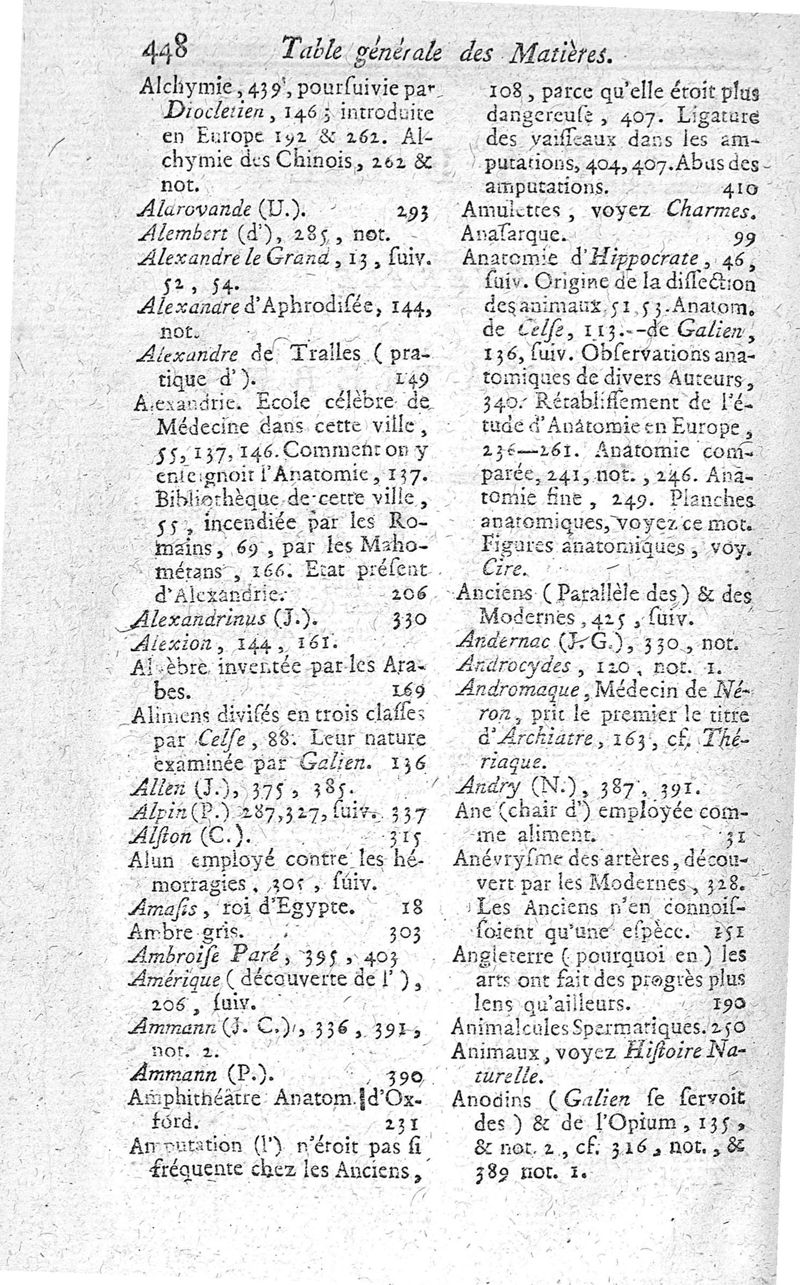 448 Table générale des Matières.
Alchymie, 439, poursuivie par
Diocletien, 146; introduite
en Europe 192 & 262. Al-
chymie des Chinois, 262 &
not.
Aldrovande (U.). 293
Alembert (d'), 285, not.
Alexandre le Grand, 13, suiv.
52, 54.
Alexandre d'Aphrodisée, 144,
not.
Alexandre de Tralles (pra-
tique d'). 149
Alexandrie. Ecole célèbre de
Médecine dans cette ville,
55, 137, 146. Comment on y
enseignoit l'Anatomie, 137.
Bibliothèque de cette ville,
55, incendiée par les Ro-
mains, 69, par les Maho-
métans, 166. Etat présent
d'Alexandrie. 206
Alexandrinus (J.). 330
Alexion, 144, 161.
Algèbre inventée par les Ara-
bes. 169
Alimens divisés en trois classes
par Celse, 88. Leur nature
examinée par Galien. 136
Allen (J.), 375, 385.
Alpin (P.) 287, 327, suiv. 337
Alston (C.). 315
Alun employé contre les hé-
morragies, 305, suiv.
Amasis, roi d'Egypte. 18
Ambre gris. 303
Ambroise Paré, 395, 403
Amérique (découverte de l'),
206, suiv.
Ammann (J. C.), 336, 391,
not. 2.
Ammann (P.). 390
Amphithéâtre Anatom. d'Ox-
ford. 231
Amputation (l') n'étoit pas si
fréquente chez les Anciens,
108, parce qu'elle étoit plus
dangereuse, 407. Ligature
des vaisseaux dans les am-
putations, 404, 407. Abus des
amputations. 410
Amulettes, voyez Charmes.
Anasarque. 99
Anatomie d'Hippocrate, 46,
suiv. Origine de la dissection
des animaux, 51, 53. Anatom.
de Celse, 113.--de Galien,
136, suiv. Observations ana-
tomiques de divers Auteurs,
340. Rétablissement de l'é-
tude d'Anatomie en Europe,
236—261. Anatomie com-
parée, 241, not., 246. Ana-
tomie fine, 249. Planches
anatomiques, voyez ce mot.
Figures anatomiques, voy.
Cire.
Anciens (Parallèle des) & des
Modernes, 425, suiv.
Andernac (J. G.), 330, not.
Androcydes, 120, not. 1.
Andromaque, Médecin de Né-
ron, prit le premier le titre
d'Archiatre, 163, cf. Thé-
riaque.
Andry (N.), 387, 391.
Ane (chair d') employée com-
me aliment. 31
Anévrysme des artères, décou-
vert par les Modernes, 328.
Les Anciens n'en connois-
soient qu'une espèce. 151
Angleterre (pourquoi en) les
arts ont fait des progrès plus
lens qu'ailleurs. 190
Animalcules Spermatiques. 250
Animaux, voyez Histoire Na-
turelle.
Anodins (Galien se servoit
des) & de l'Opium, 135,
& not. 2, cf. 316, not., &
389 not. 1.